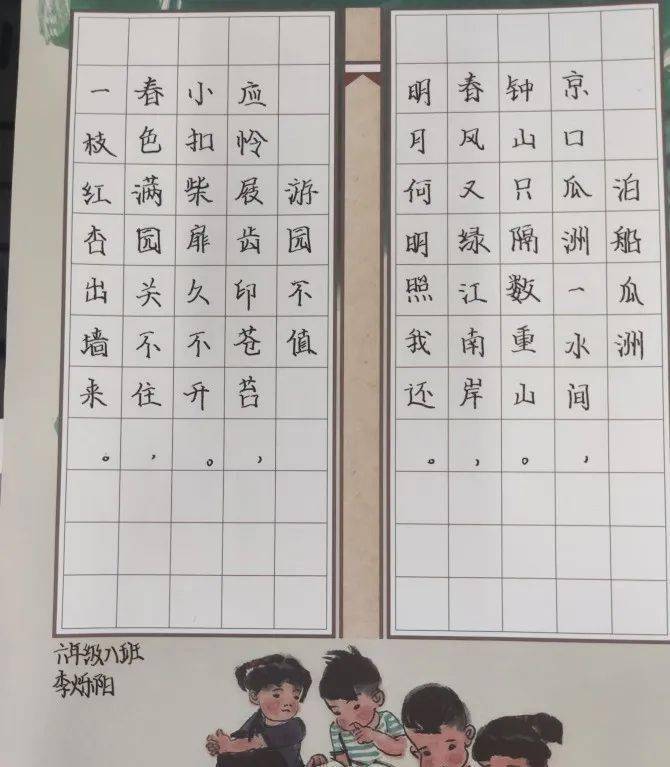 泊船瓜洲
京口瓜洲一水间，
钟山只隔数重山。
春风又绿江南岸，
明月何明照我还。
游园不值
应怜屐齿印苍苔，
小扣柴扉久不开。
春色满园关不住，
一枝红杏出墙来。
六年级八班
李烁阳